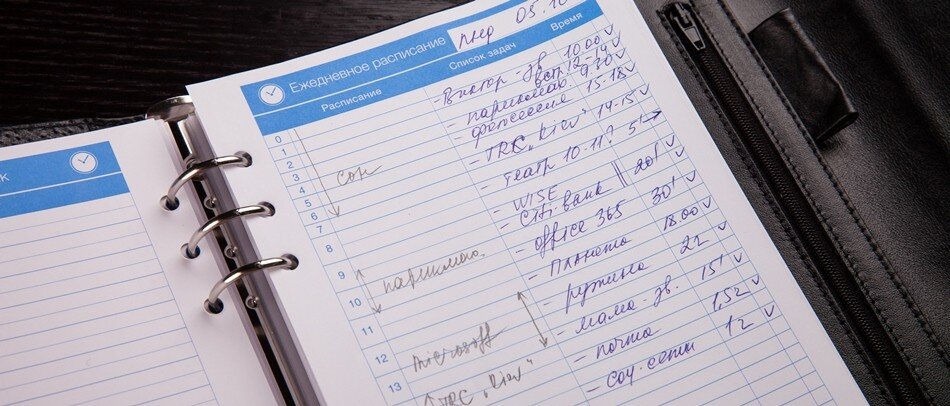 К
пнер 05.10
Ежедневное расписание
Расписание Список задач Время
- Виктор - зв. 10 00 v
встр. 12-14 v
- парикмах. 9.30 v
- фотосессия 15-18 v
- TRC "Kiev" 14-15 v
- театр 10-11? 5' →
- WISE
- Citi bank 20' v
- office 365 30' v
- Планета 18.00 v
- ружина 22 v
- мама - зв. 15' v
- почта 1,52 v
- соц. сети 12 v
0
1
2
3 сон
4
5
6
7
8
9 парикмах.
10
11
12 microsoft
13 TRC "Kiev"